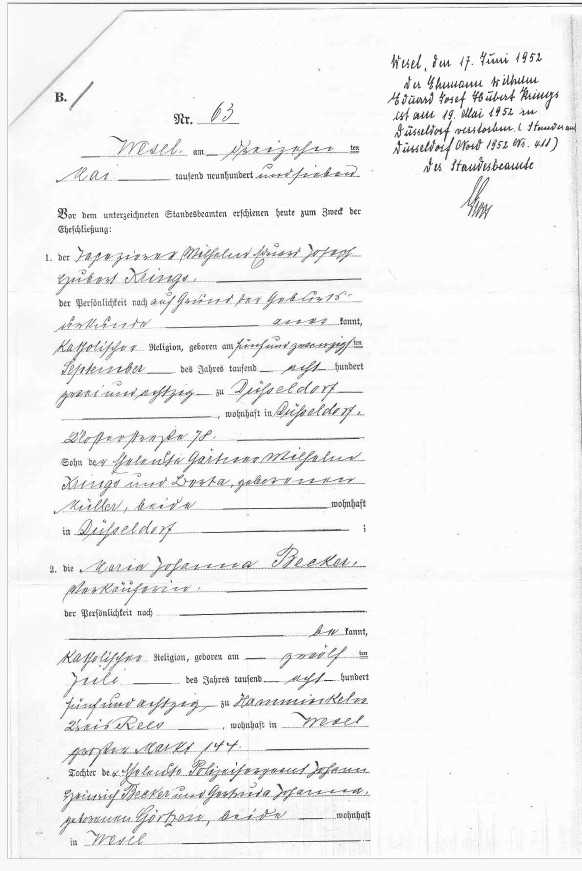 Wesel, den 17. Juni 1952
Der Ehemann Wilhelm
Eduard Josef Hubert Krings
ist am 19. Mai 1952 in
Düsseldorf verstorben. (Standesamt
Düsseldorf Nord 1952 Nr. 411)
Der Standesbeamte
B.
Nr. 63
Wesel am dreizehn ten
Mai tausend neunhundert und sieben
Vor dem unterzeichneten Standesbeamten erschienen heute zum Zweck der
Eheschließung:
1. der Tapezierer Wilhelm Eduard Joseph
Hubert Krings.
der Persönlichkeit nach auf Grund der Geburts-
urkunde aner kannt,
katholischer Religion, geboren am fünfundzwanzigs ten
September des Jahres tausend acht hundert
zweiundachtzig zu Düsseldorf
, wohnhaft in Düsseldorf,
Klosterstraße 78.
Sohn der Gärtner Wilhelm
Krings und Berta, geborenen
Müller, beide wohnhaft
in Düsseldorf ;
2. die Maria Johanna Becker,
Verkäuferin.
der Persönlichkeit nach
be kannt,
katholischer Religion, geboren am zwölf ten
Juli des Jahres tausend acht hundert
fünfundachtzig zu Hamminkeln
Kreis Rees, wohnhaft in Wesel
großer Markt 144.
Tochter der Polizeisergeant Johann
Heinrich Becker und Gertruda Johanna,
geborenen beide wohnhaft
in Wesel